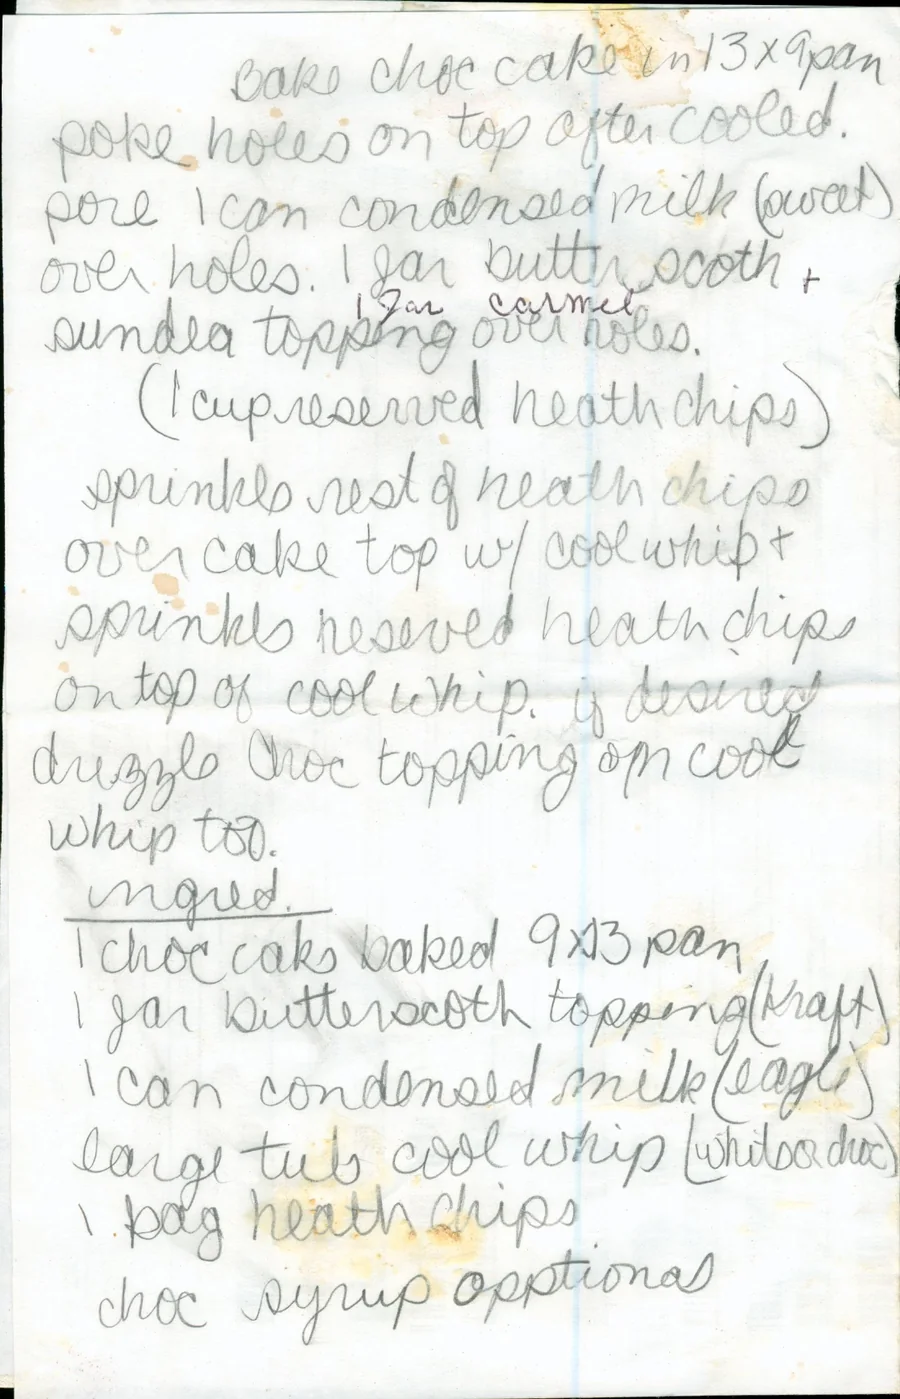 Bake choc cake in 13x9 pan
poke holes on top after cooled.
pore 1 can condensed milk (sweet)
over holes. 1 jar butterscoth +
1 Jar carmel
sundea topping over holes.
(1 cup reserved heath chips)
sprinkle rest of heath chips
over cake top w/ cool whip +
sprinkle reseved heath chips
on top of cool whip. if desired
drizzle choc topping on cool
whip too.
ingred.
1 choc cake baked 9x13 pan
1 jar butterscoth topping (Kraft)
1 can condensed milk (eagle)
large tub cool whip (white or choc)
1 bag heath chips
choc syrup opptional